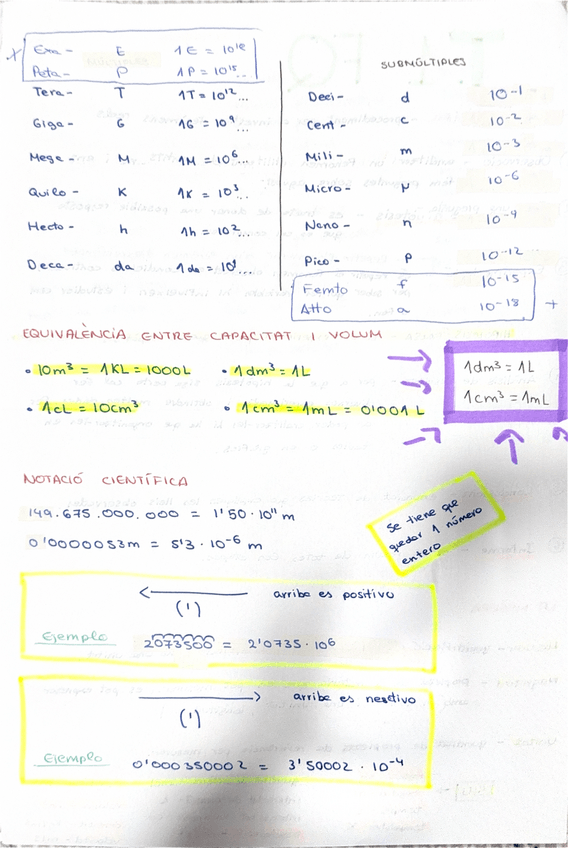 Exa - E 1E = 10¹⁸
Peta - P 1P = 10¹⁵...
Tera - T 1T = 10¹²...
Giga - G 1G = 10⁹...
Mega - M 1M = 10⁶...
Quilo - K 1K = 10³...
Hecto - h 1h = 10²...
Deca - da 1da = 10¹...
SUBMÚLTIPLES
Deci - d 10-1
Cent - c 10-2
Mili - m 10-3
Micro - μ 10-6
Nano - n 10-9
Pico - p 10-12
Femto f 10-15
Atto a 10-18 +
EQUIVALÈNCIA ENTRE CAPACITAT I VOLUM
• 10m³ = 1KL = 1000L • 1dm³ = 1L
• 1cL = 10cm³ • 1cm³ = 1mL = 0'001 L
1dm³ = 1L
1cm³ = 1mL
NOTACIÓ CIENTÍFICA
149.675.000.000 = 1'50·10¹¹ m
0'0000053m = 5'3·10⁻⁶ m
se tiene que
quedar 1 número
entero
← arriba es positivo
(')
Ejemplo 2073500 = 2'0735·10⁶
→ arriba es neativo
(')
Ejemplo 0'000350002 = 3'50002·10⁻⁴